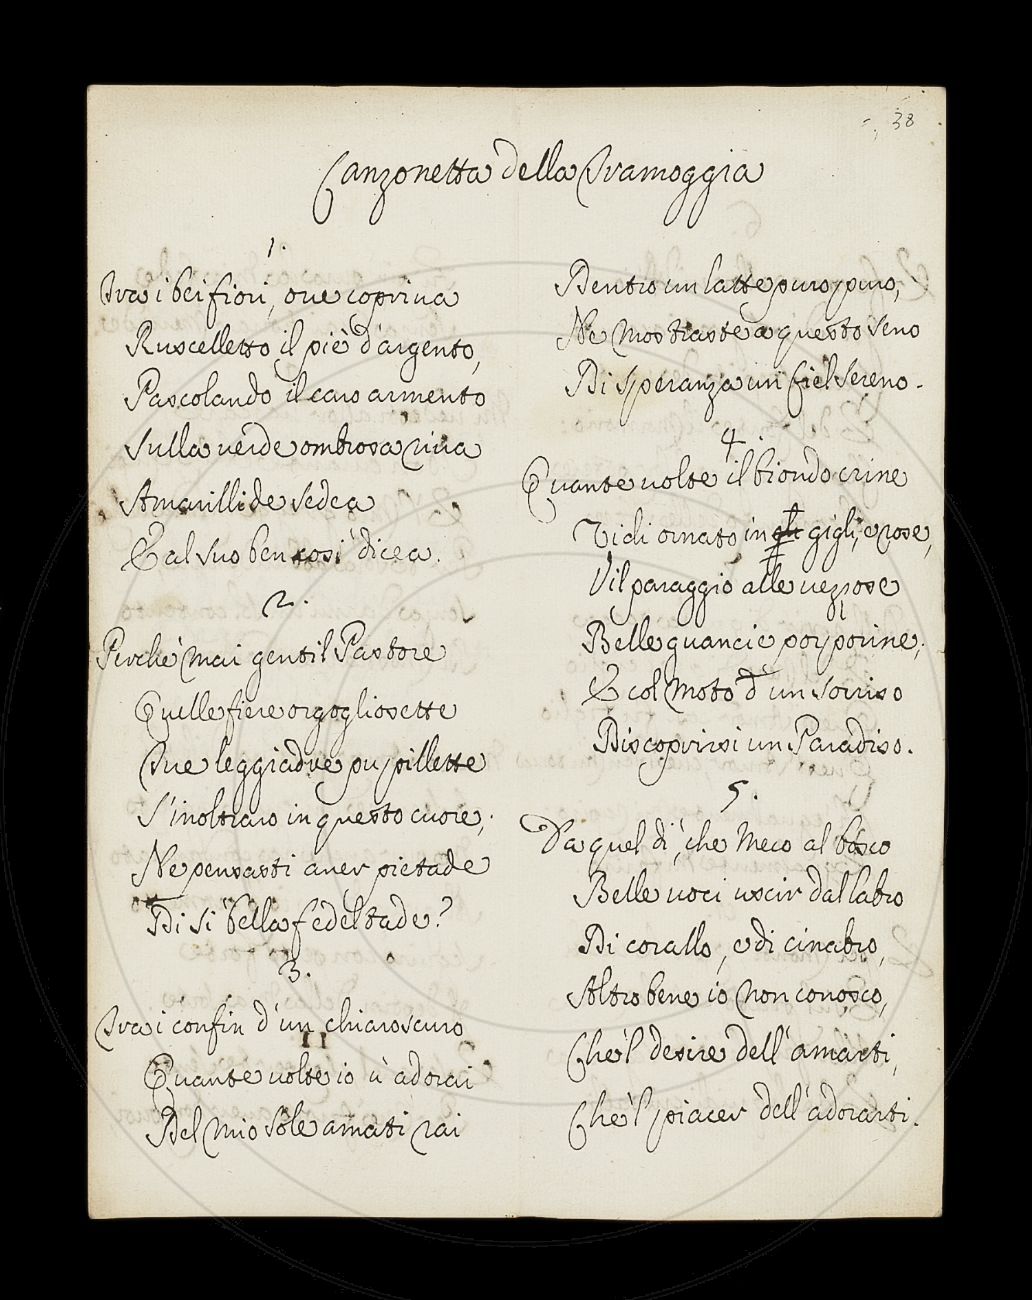 38
Canzonetta della Tramoggia
1.
Tra i bei fiori, oue copriua
Ruscelletto il piè d'argento,
Pascolando il caro armento
Sulla uerde ombrosa riua
Amarillide sedea
E al suo ben così dicea.
2.
Perchè mai gentil Pastore
Quelle fiere orgogliosette
Due leggiadre pupillette
S'inoltraro in questo cuore,
Ne pensasti auer pietade
Di si bella fedeltade?
3.
Tra i confin d'un chiaroscuro
Quante uolte io u' adorai
Del mio Sole amati rai
Dentro un latte puro, puro,
Ne mostraste a questo seno
Di speranza un fiel sereno.
4.
Quante uolte il biondo crine
Vidi ornato in gli gigli, e rose,
Vil paraggio alle uezzose
Belle guancie porporine,
E col moto d'un sorriso
Discoprirsi un Paradiso.
5.
Da quel dì, che meco al bosco
Belle uoci uscir dal labro
Di corallo, e di cinabro,
Altro bene io non conosco,
Che'l desire dell'amarti,
Che'l piacer dell'adorarti.